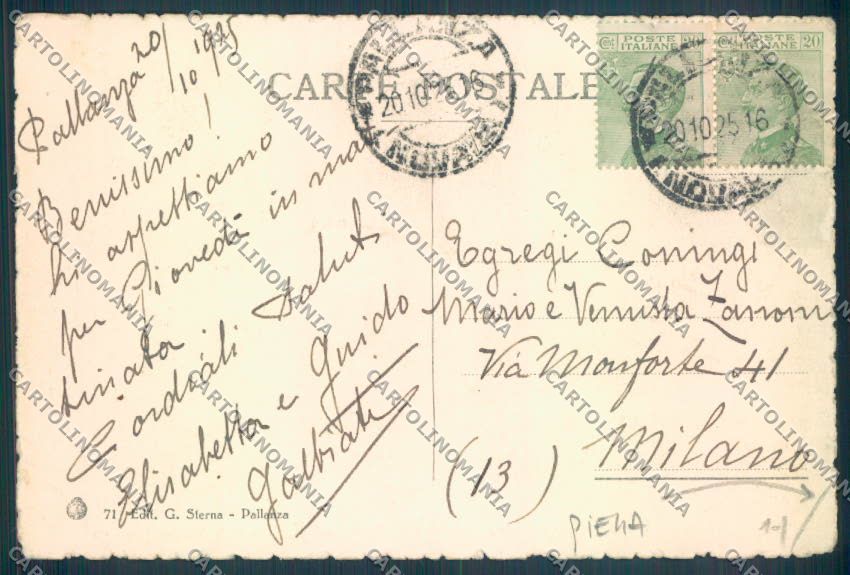 Pallanza 20/10 1925
Benissimo!
Vi aspettiamo
per Giovedì in mat
tinata
Cordiali Saluti
Elisabetta e Guido
Galbiati
71 Edit. G. Sterna - Pallanza
CARTE POSTALE
PALLANZA
20 10 25 16
NOVARA
POSTE ITALIANE 20
POSTE ITALIANE 20
20 10 25 16
Egregi Coniugi
Mario e Venusta Zanoni
Via Monforte 41
Milano
(13)
PIEMA
CARTOLINOMANIA